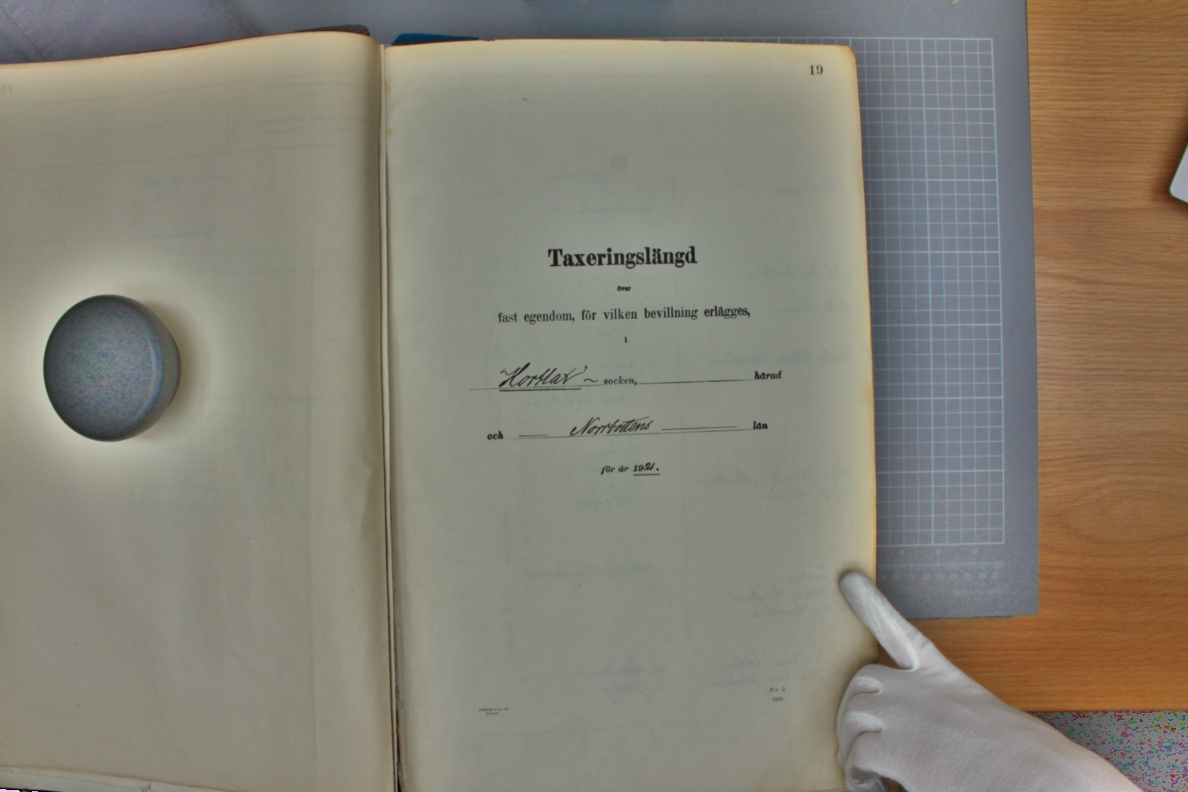 19
Taxeringslängd
över
fast egendom, för vilken bevillning erlägges,
i
Hortlax socken, härad
och Norrbottens län
för år 1921.
No 2.